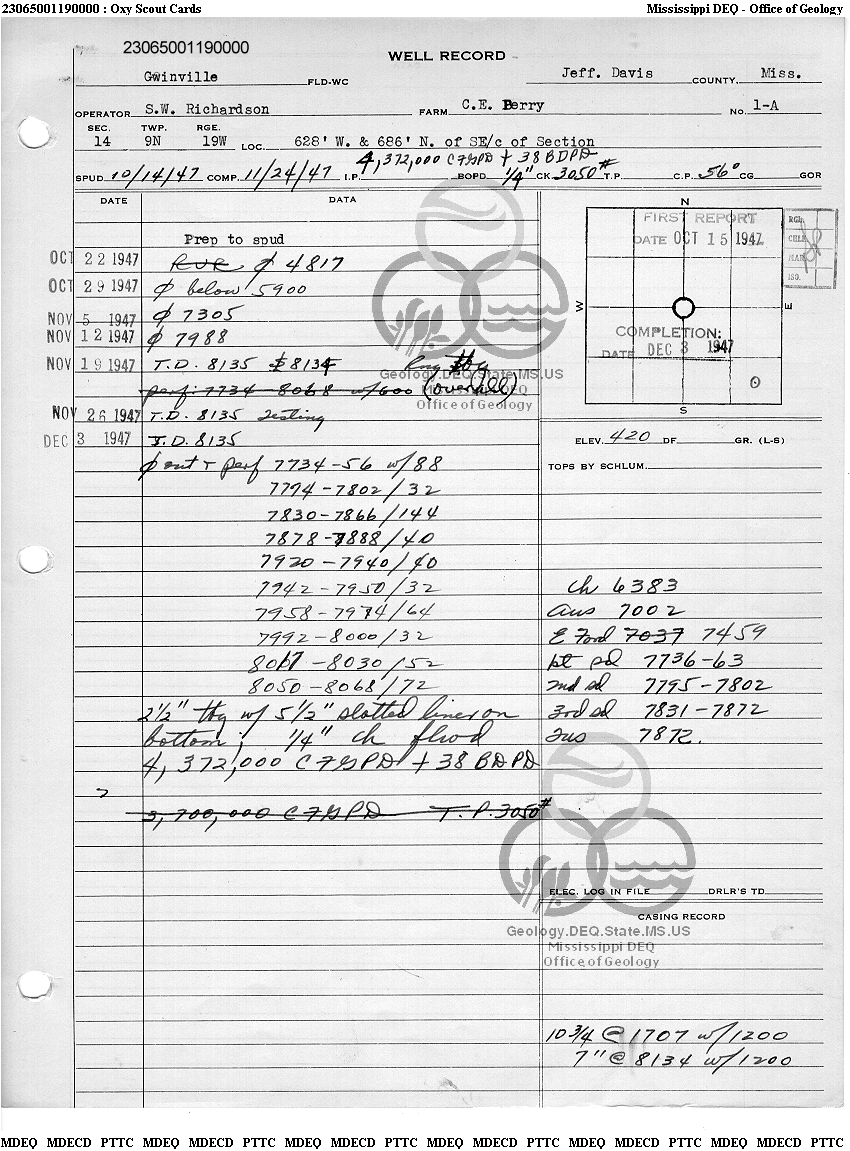 23065001190000 : Oxy Scout Cards Mississippi DEQ - Office of Geology
23065001190000
WELL RECORD
Gwinville FLD-WC Jeff. Davis COUNTY, Miss.
OPERATOR S.W. Richardson FARM C.E. Berry NO. 1-A
SEC. TWP. RGE.
14 9N 19W LOC. 628' W. & 686' N. of SE/c of Section
4,372,000 CFGPD + 38 BDPD
SPUD 10/14/47 COMP. 11/24/47 I.P. BOPD 1/4" CK. 3050# T.P. C.P. 56° CG GOR
DATE DATA
Prep to spud
OCT 22 1947 RUR ϕ 4817
OCT 29 1947 ϕ below 5900
NOV 5 1947 ϕ 7305
NOV 12 1947 ϕ 7988
NOV 19 1947 T.D. 8135 8134 Rng tbg
perf: 7734-8068 w/600
NOV 26 1947 T.D. 8135 testing
DEC 3 1947 T.D. 8135
perf 7734-56 w/88
7794-7802/32
7830-7866/144
7878-7888/40
7920-7940/40
7942-7950/32
7958-7974/64
7992-8000/32
8017-8030/52
8050-8068/72
2 1/2" tbg w/ 5 1/2" slotted liner on
bottom; 1/4" ch flwd
4,372,000 CFGPD + 38 BDPD
3,700,000 CFGPD T.P. 3050#
N
FIRST REPORT
DATE OCT 15 1947
W E
COMPLETION:
DATE DEC 3 1947
S
RGL.
CHLK
MAIN
ISO.
ELEV. 420 DF GR. (L-S)
TOPS BY SCHLUM.
Ch 6383
Aus 7002
E Ford 7037 7459
pt sd 7736-63
2nd sd 7795-7802
3rd sd 7831-7872
Tus 7872.
ELEC. LOG IN FILE DRLR'S TD
CASING RECORD
10 3/4 @ 1707 w/1200
7" @ 8134 w/1200
Geology.DEQ.State.MS.US
Mississippi DEQ
Office of Geology
Geology.DEQ.State.MS.US
Mississippi DEQ
Office of Geology
MDEQ MDECD PTTC MDEQ MDECD PTTC MDEQ MDECD PTTC MDEQ MDECD PTTC MDEQ MDECD PTTC MDEQ MDECD PTTC